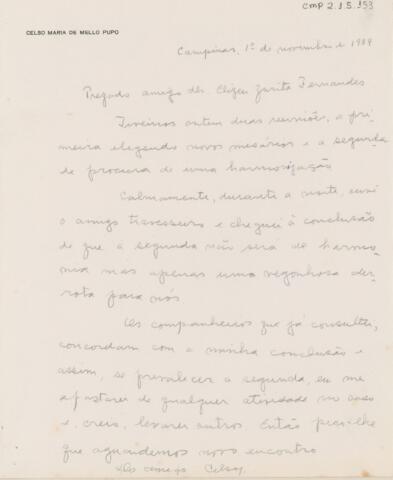 CMP 2.1.5.153
CELSO MARIA DE MELLO PUPO
Campinas, 1º de novembro de 1989
Prezado amigo dr. Fernandes
Tivemos ontem duas reuniões, a pri-
meira elegendo novos mesários e a segunda
de procura de uma harmonização
Calmamente, durante a noite, ouvi
o amigo travesseiro e cheguei à conclusão
de que a segunda não será de harmo-
nia mas apenas uma vegonhosa der-
rota para nós
Os companheiros que já consultei,
concordam com a minha conclusão e
assim, se prevalecer a segunda, eu me
afastarei de qualquer atividade no
e, creio, levarei outros. Então
que aguardemos novo encontro
Celso